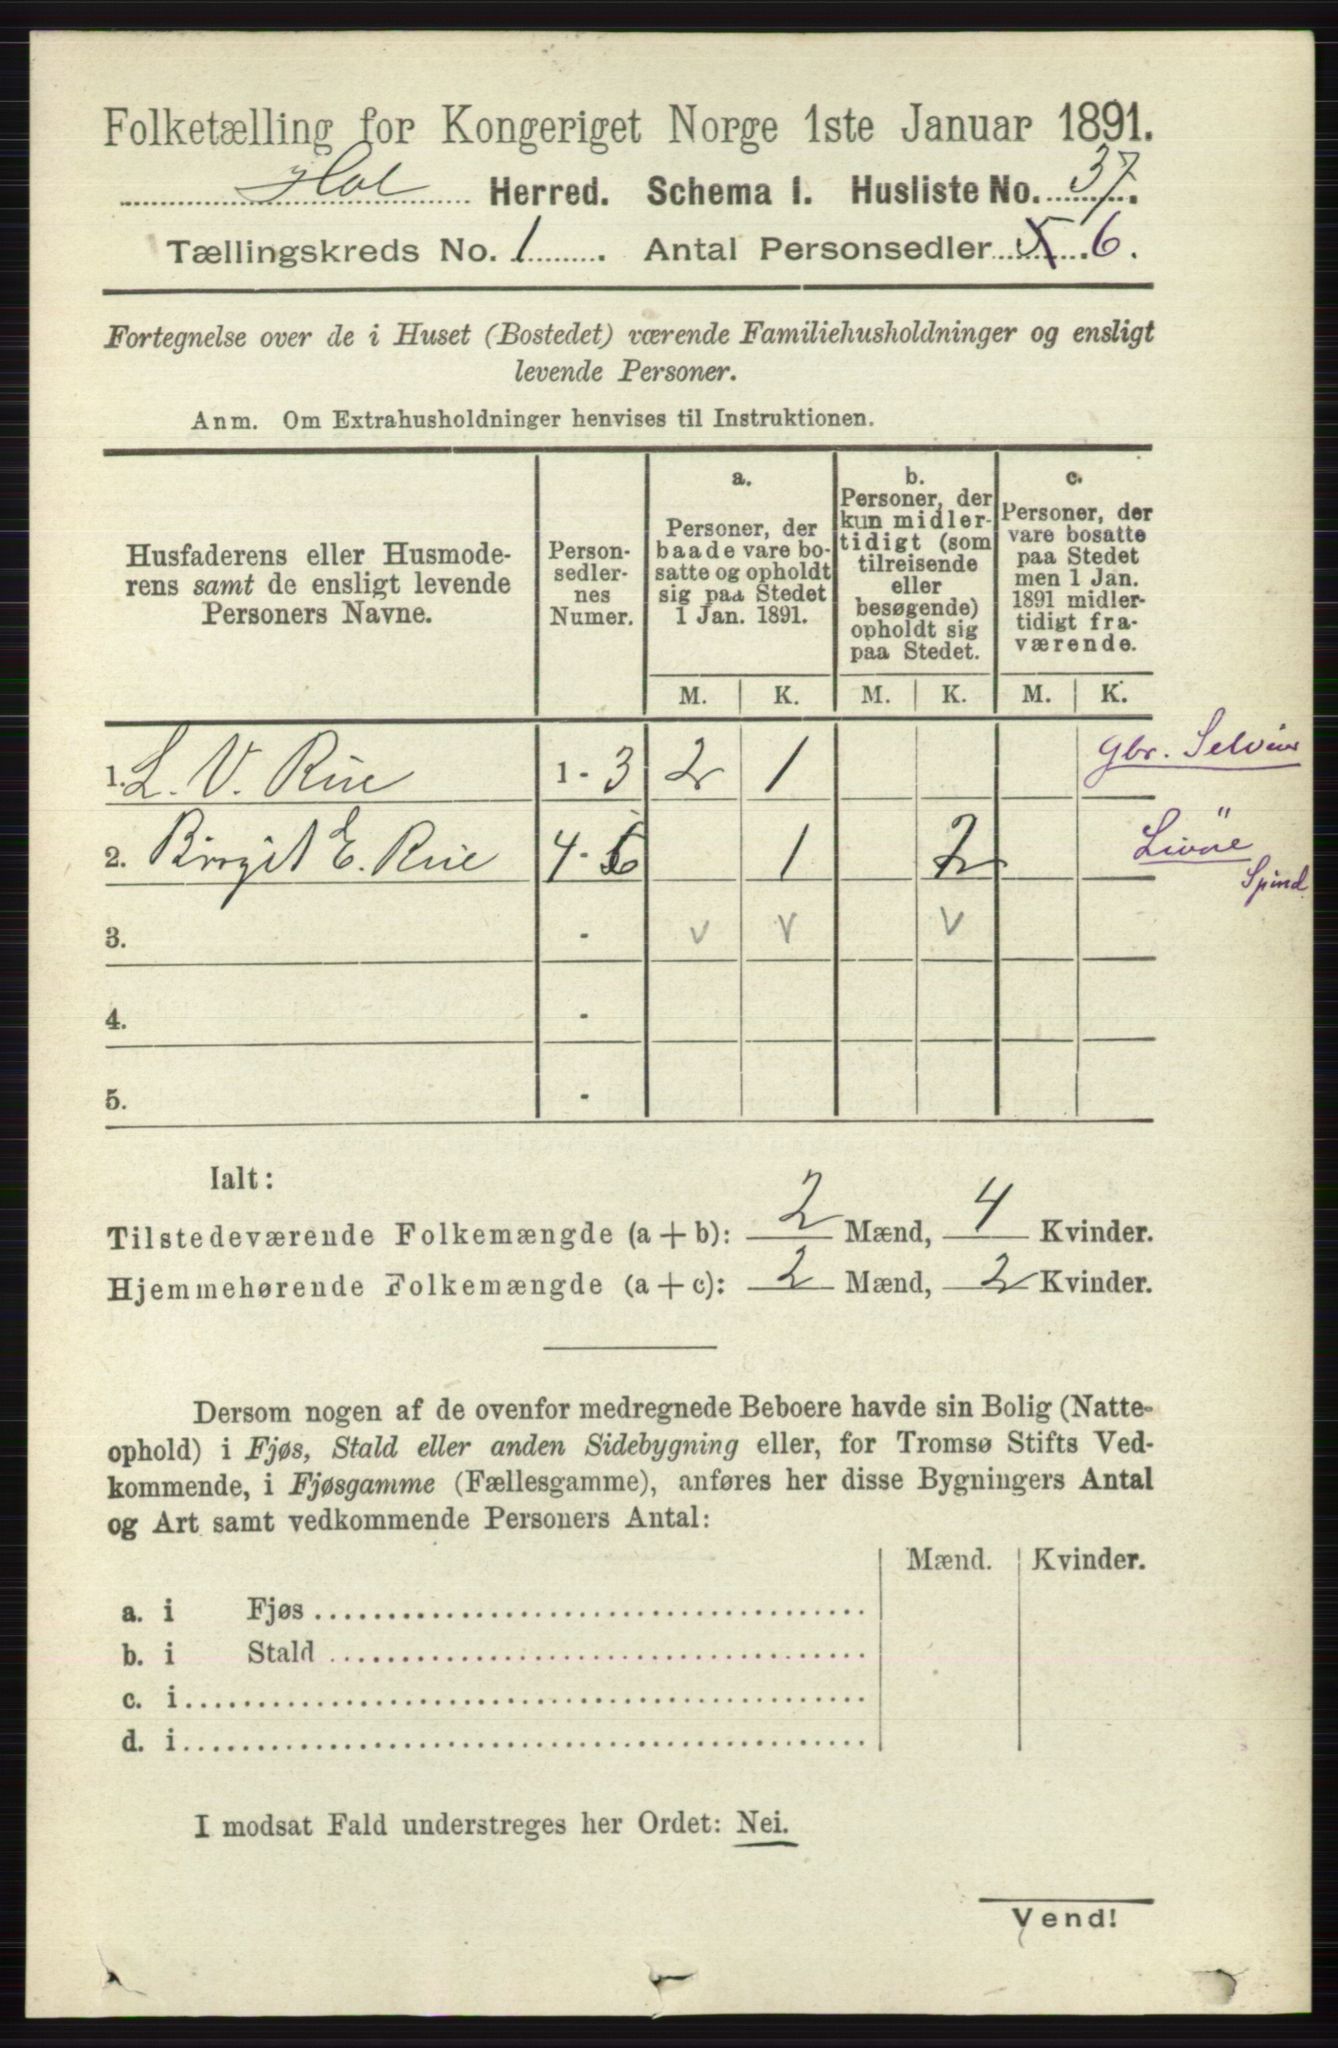 Folketælling for Kongeriget Norge 1ste Januar 1891.
Hol Herred. Schema 1. Husliste No. 37.
Tællingskreds No. 1. Antal Personsedler 5 6.
Fortegnelse over de i Huset (Bostedet) værende Familiehusholdninger og ensligt
levende Personer.
Anm. Om Extrahusholdninger henvises til Instruktionen.
Husfaderens eller Husmode-
rens samt de ensligt levende
Personers Navne.
Person-
sedler-
nes
Numer.
a.
Personer, der
baade vare bo-
satte og opholdt
sig paa Stedet
1 Jan. 1891.
b.
Personer, der
kun midler-
tidigt (som
tilreisende
eller
besøgende)
opholdt sig
paa Stedet.
c.
Personer, der
vare bosatte
paa Stedet
men 1 Jan.
1891 midler-
tidigt fra-
værende.
M. K. M. K. M. K.
1. L. V. Rue 1 - 3 2 1 Gbr. Selveier
2. Birgit E. Rue 4 - 6 1 2 Spind
3. - v v v
4. -
5. -
Ialt:
Tilstedeværende Folkemængde (a + b): 2 Mænd, 4 Kvinder.
Hjemmehørende Folkemængde (a + c): 2 Mænd, 2 Kvinder.
Dersom nogen af de ovenfor medregnede Beboere havde sin Bolig (Natte-
ophold) i Fjøs, Stald eller anden Sidebygning eller, for Tromsø Stifts Ved-
kommende, i Fjøsgamme (Fællesgamme), anføres her disse Bygningers Antal
og Art samt vedkommende Personers Antal:
Mænd. Kvinder.
a. i Fjøs
b. i Stald
c. i
d. i
I modsat Fald understreges her Ordet: Nei.
Vend!